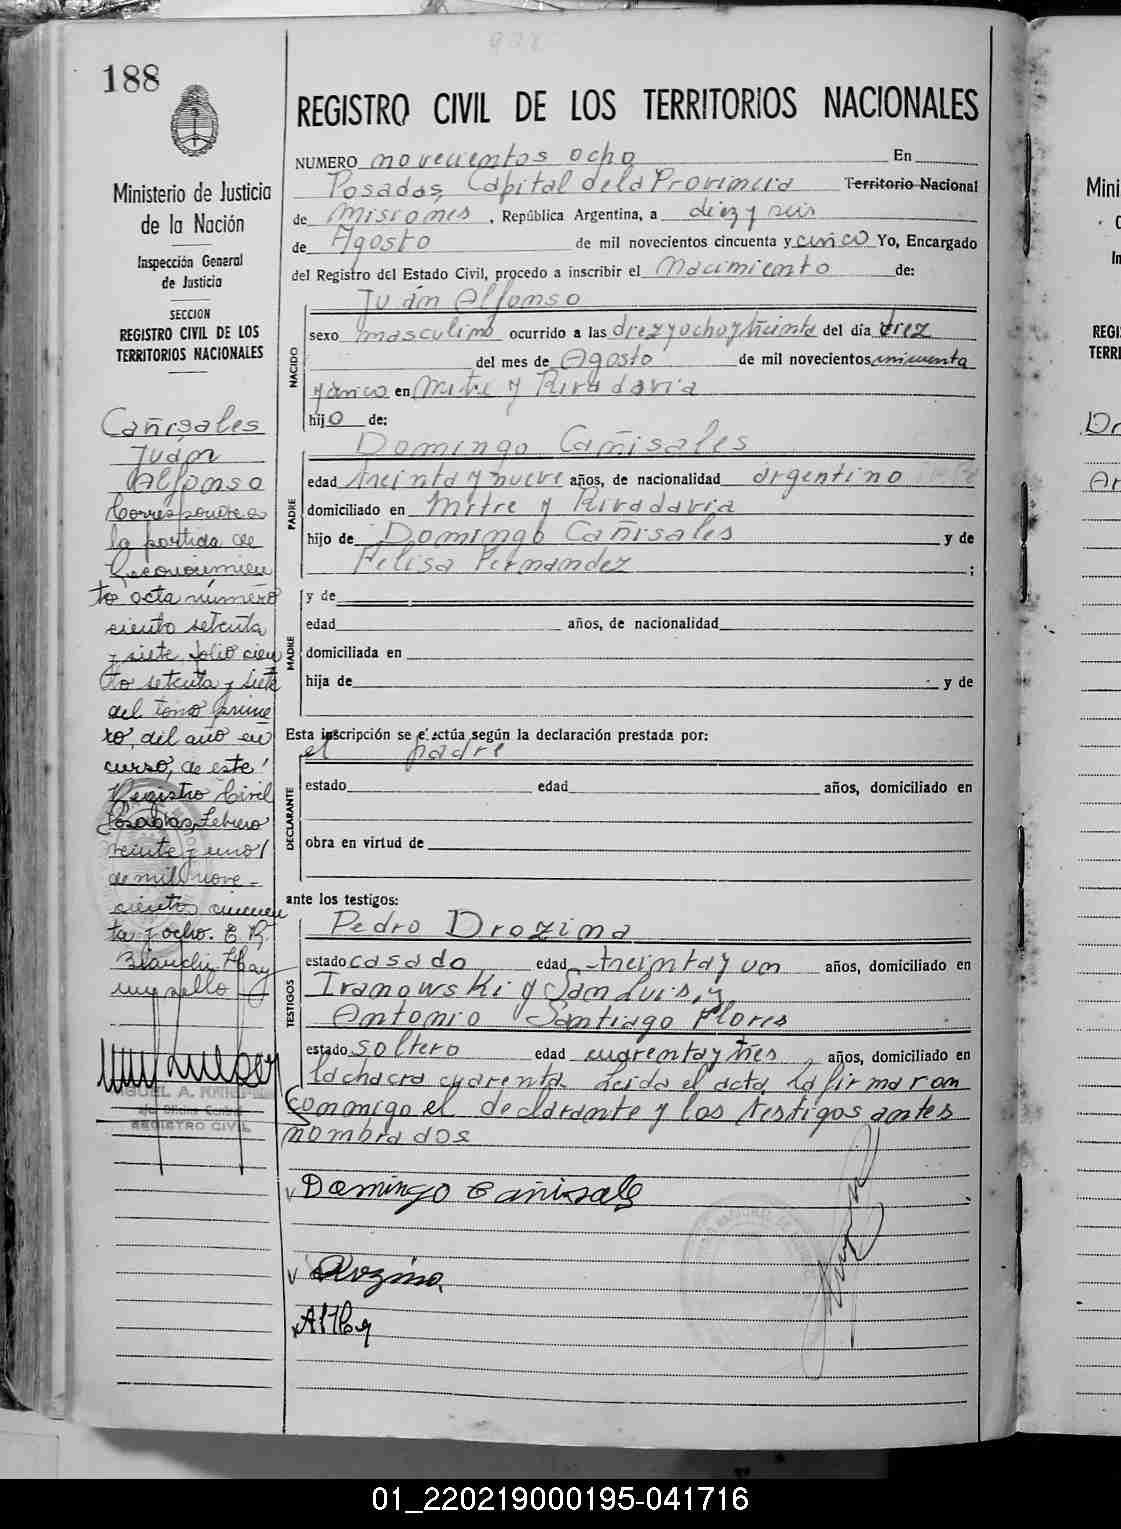 188
REGISTRO CIVIL DE LOS TERRITORIOS NACIONALES
Ministerio de Justicia
de la Nación
Inspección General
de Justicia
SECCION
REGISTRO CIVIL DE LOS
TERRITORIOS NACIONALES
Cañisales
Juan
Alfonso
Corresponde a
la partida de
Reconocimien
to acta número
ciento setenta
y siete, folio cien
to setenta y siete
del tomo prime
ro, del año en
curso, de este
Registro Civil
Posadas, Febrero
veinte y uno
de mil nove
cientos cincuen
ta y ocho. E. R.
Blanchi Hay
un sello
MIGUEL A.
REGISTRO CIVIL
NUMERO novecientos ocho En
Posadas, Capital de la Provincia Territorio Nacional
de Misiones, República Argentina, a diez y seis
de Agosto de mil novecientos cincuenta y cinco Yo, Encargado
del Registro del Estado Civil, procedo a inscribir el Nacimiento de:
NACIDO
Juan Alfonso
sexo masculino ocurrido a las diez y ocho y treinta del día diez
del mes de Agosto de mil novecientos cincuenta
y cinco en Mitre y Rivadavia
hijo de:
PADRE
Domingo Cañisales
edad treinta y nueve años, de nacionalidad argentino
domiciliado en Mitre y Rivadavia
hijo de Domingo Cañisales y de
Felisa Fernandez ;
MADRE
y de
edad años, de nacionalidad
domiciliada en
hija de y de
Esta inscripción se efectúa según la declaración prestada por:
el padre
DECLARANTE
estado edad años, domiciliado en
obra en virtud de
ante los testigos:
TESTIGOS
Pedro Drozina
estado casado edad treinta y un años, domiciliado en
Iranowski y San Luis, y
Antonio Santiago Flores
estado soltero edad cuarenta y tres, años, domiciliado en
la chacra cuarenta. Leida el acta, la firmaron
conmigo el declarante y los testigos antes
nombrados
Domingo Cañisales
Drozina
01_220219000195-041716